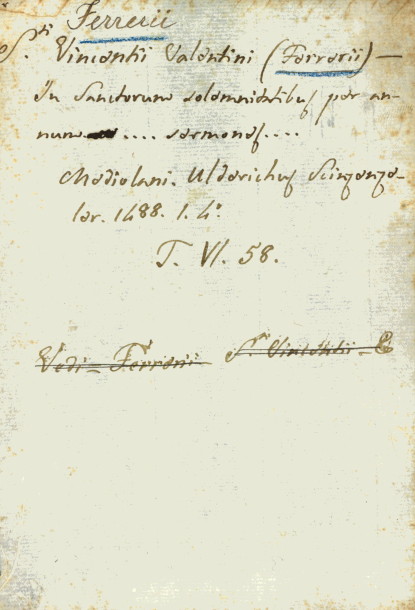 Ferrerii
S.ti Vincentii Valentini (Ferrerii) —
In Sanctorum solemnitatibus per an-
num .... sermones ....
Mediolani. Uldericus Scinzenze-
ler. 1488. 1. 4°.
T. VI. 58.
Vedi = Ferrerii S.ti Vincentii =